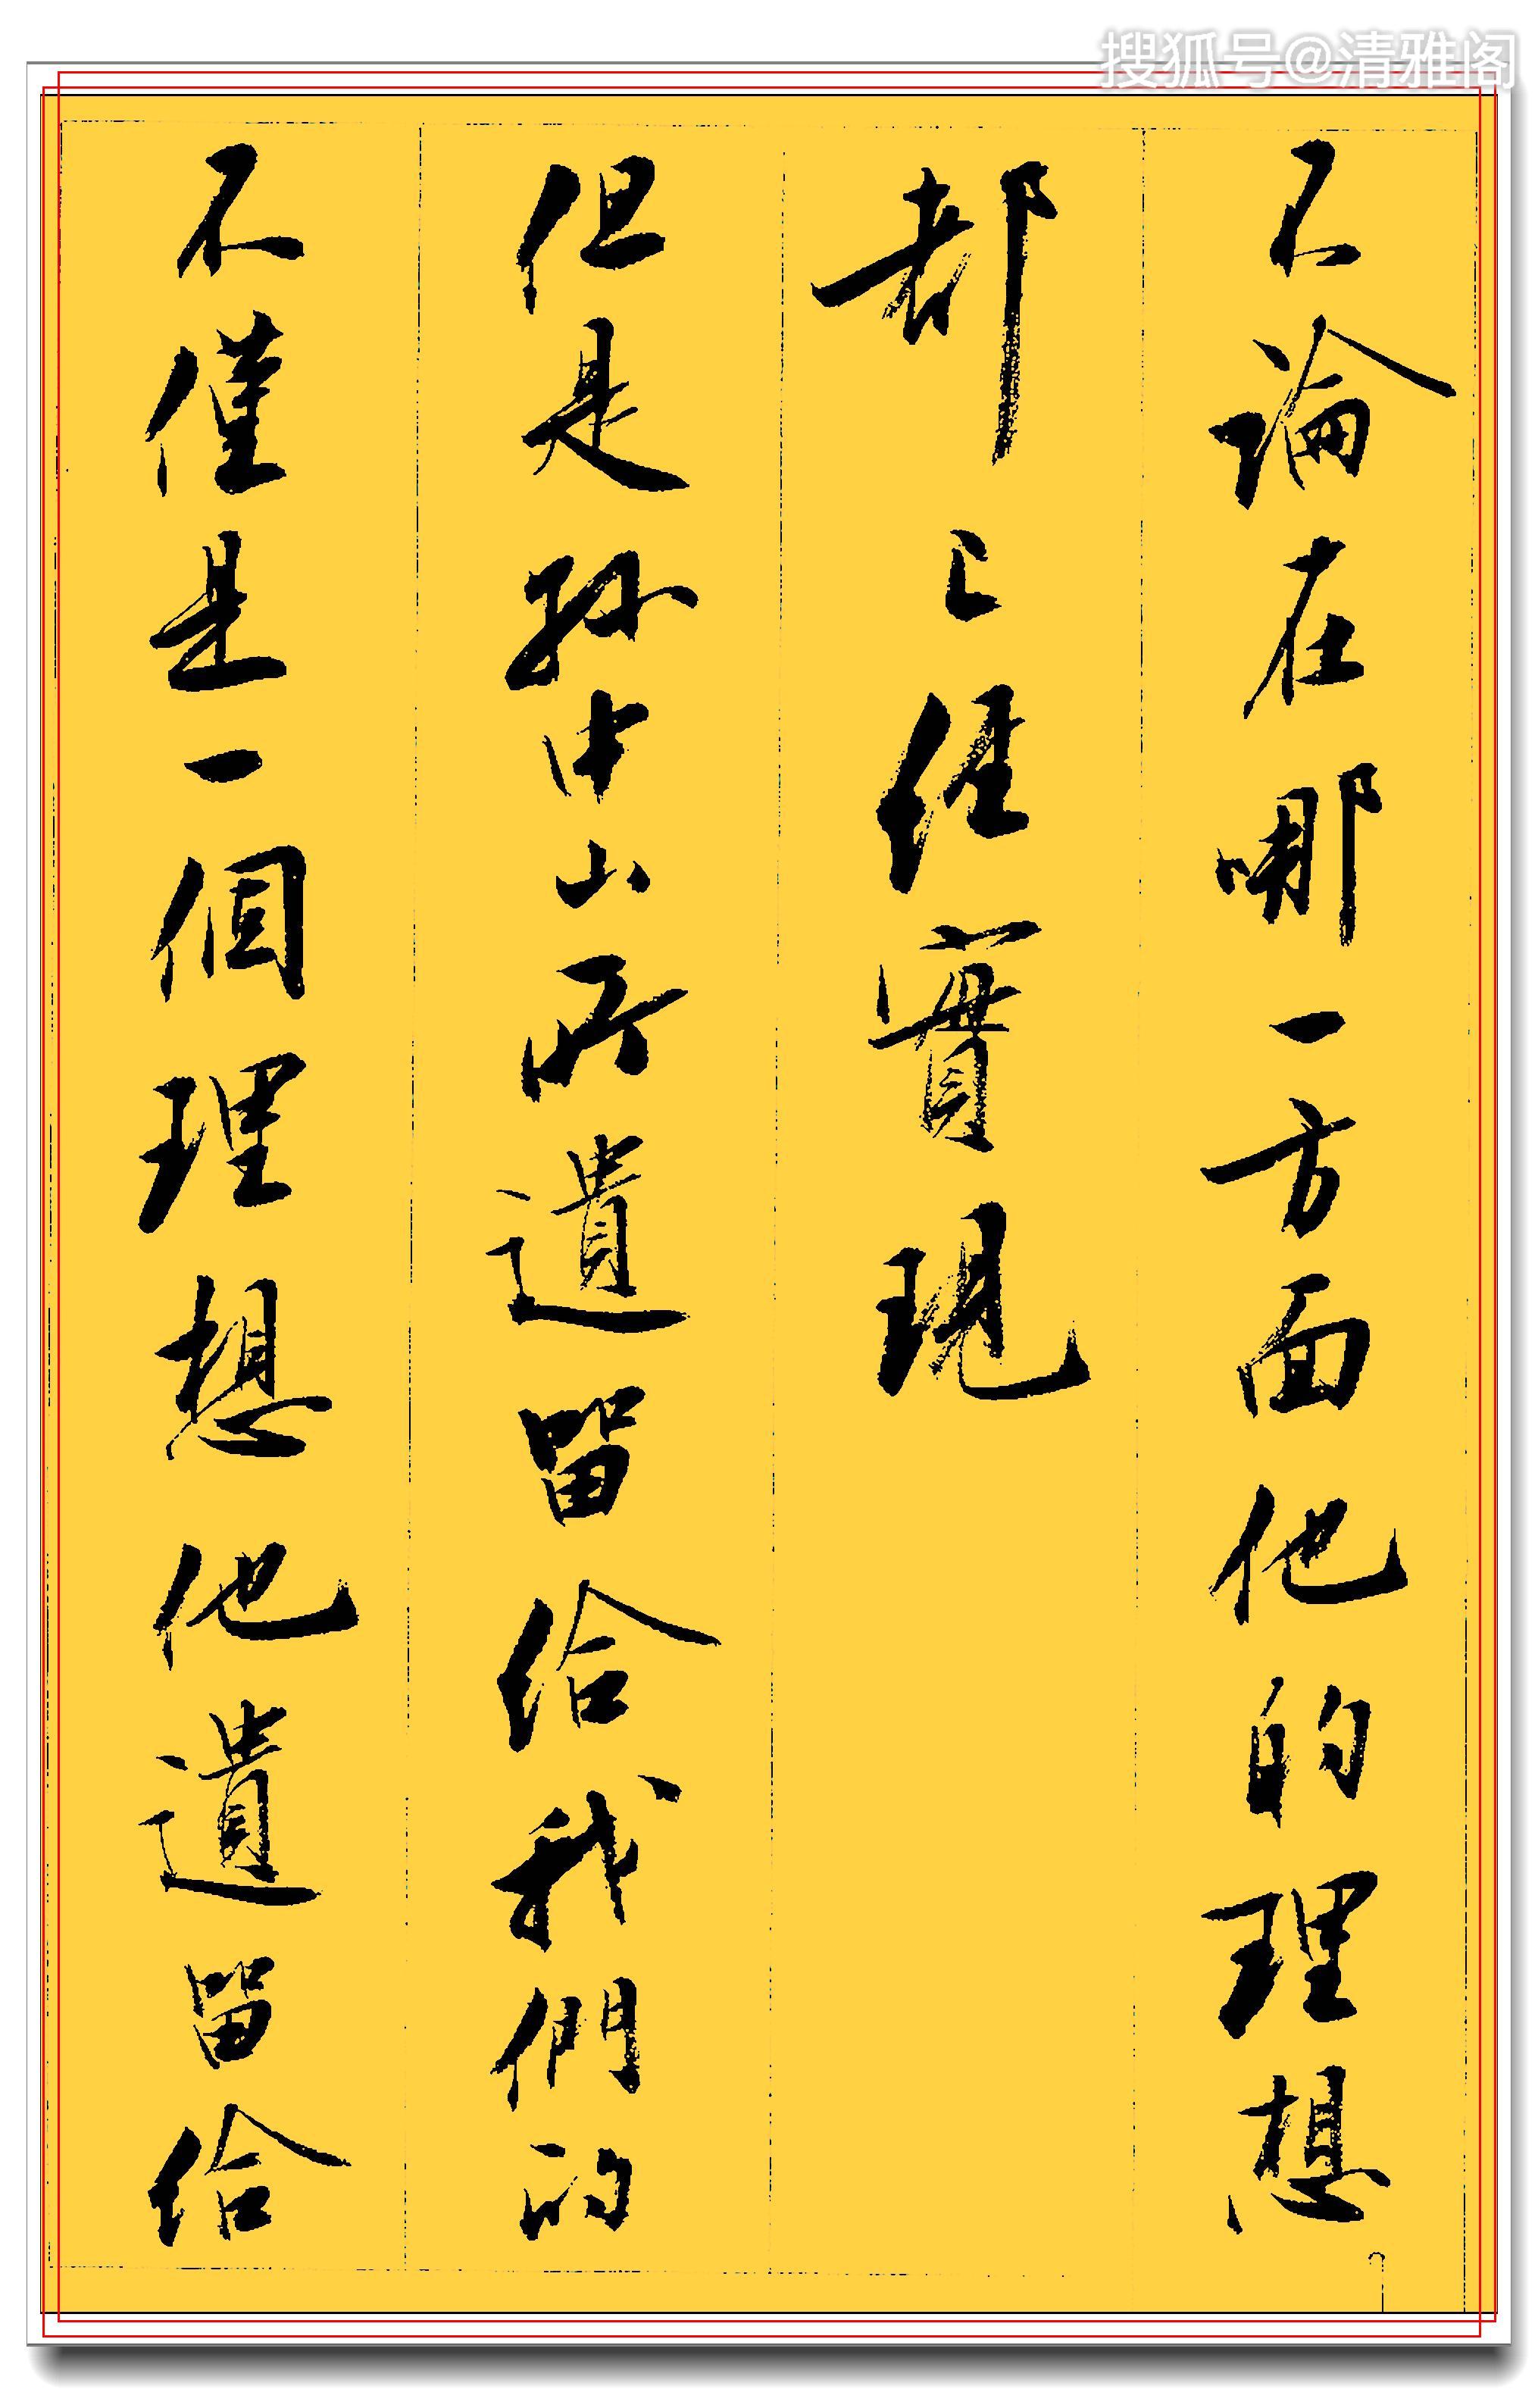 搜狐号@清雅阁
不論在哪一方面他的理想
都已經實現
但是孫中山所遺留給我們的
不僅是一個理想他遺留給